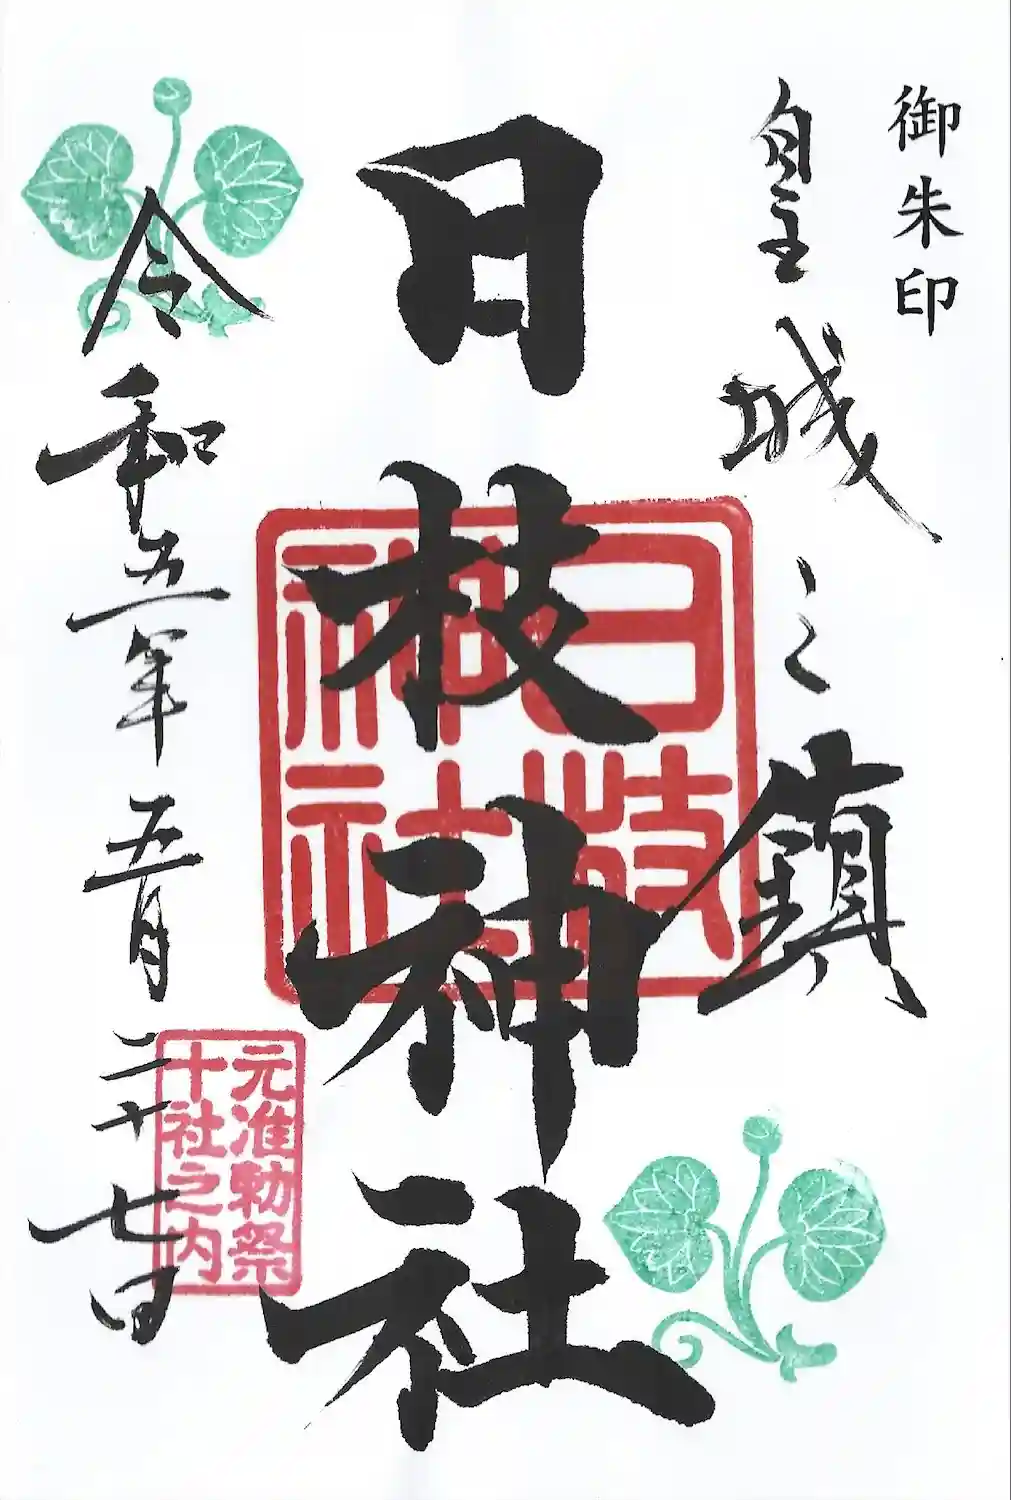 御朱印
皇城之鎮
日枝神社
日枝
神社
令和五年五月二十七日
元准勅祭
十社之内